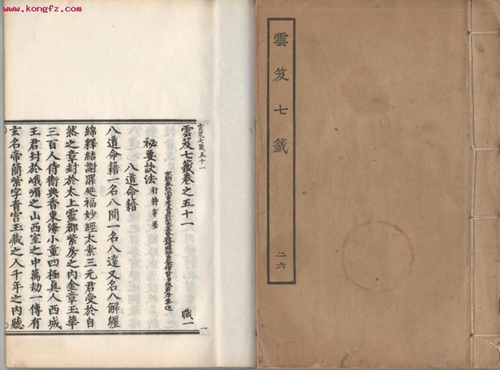 www.kongfz.com
雲笈七籤
二六
雲笈七籤五十一
雲笈七籤卷之五十一
職一
秘要訣法
八道命籍
八道命籍一名八間一名八達又名八解纏
綿釋結謝罪延福妙經太素三元君受於自
然之章封於太上靈都紫房之內金章玉華
三百人侍衛典香東海小童四極真人西城
王君封於峨嵋之山西室之中萬劫一傳有
玄名帝簡紫字青宮玉藏之人千年之內聽
一